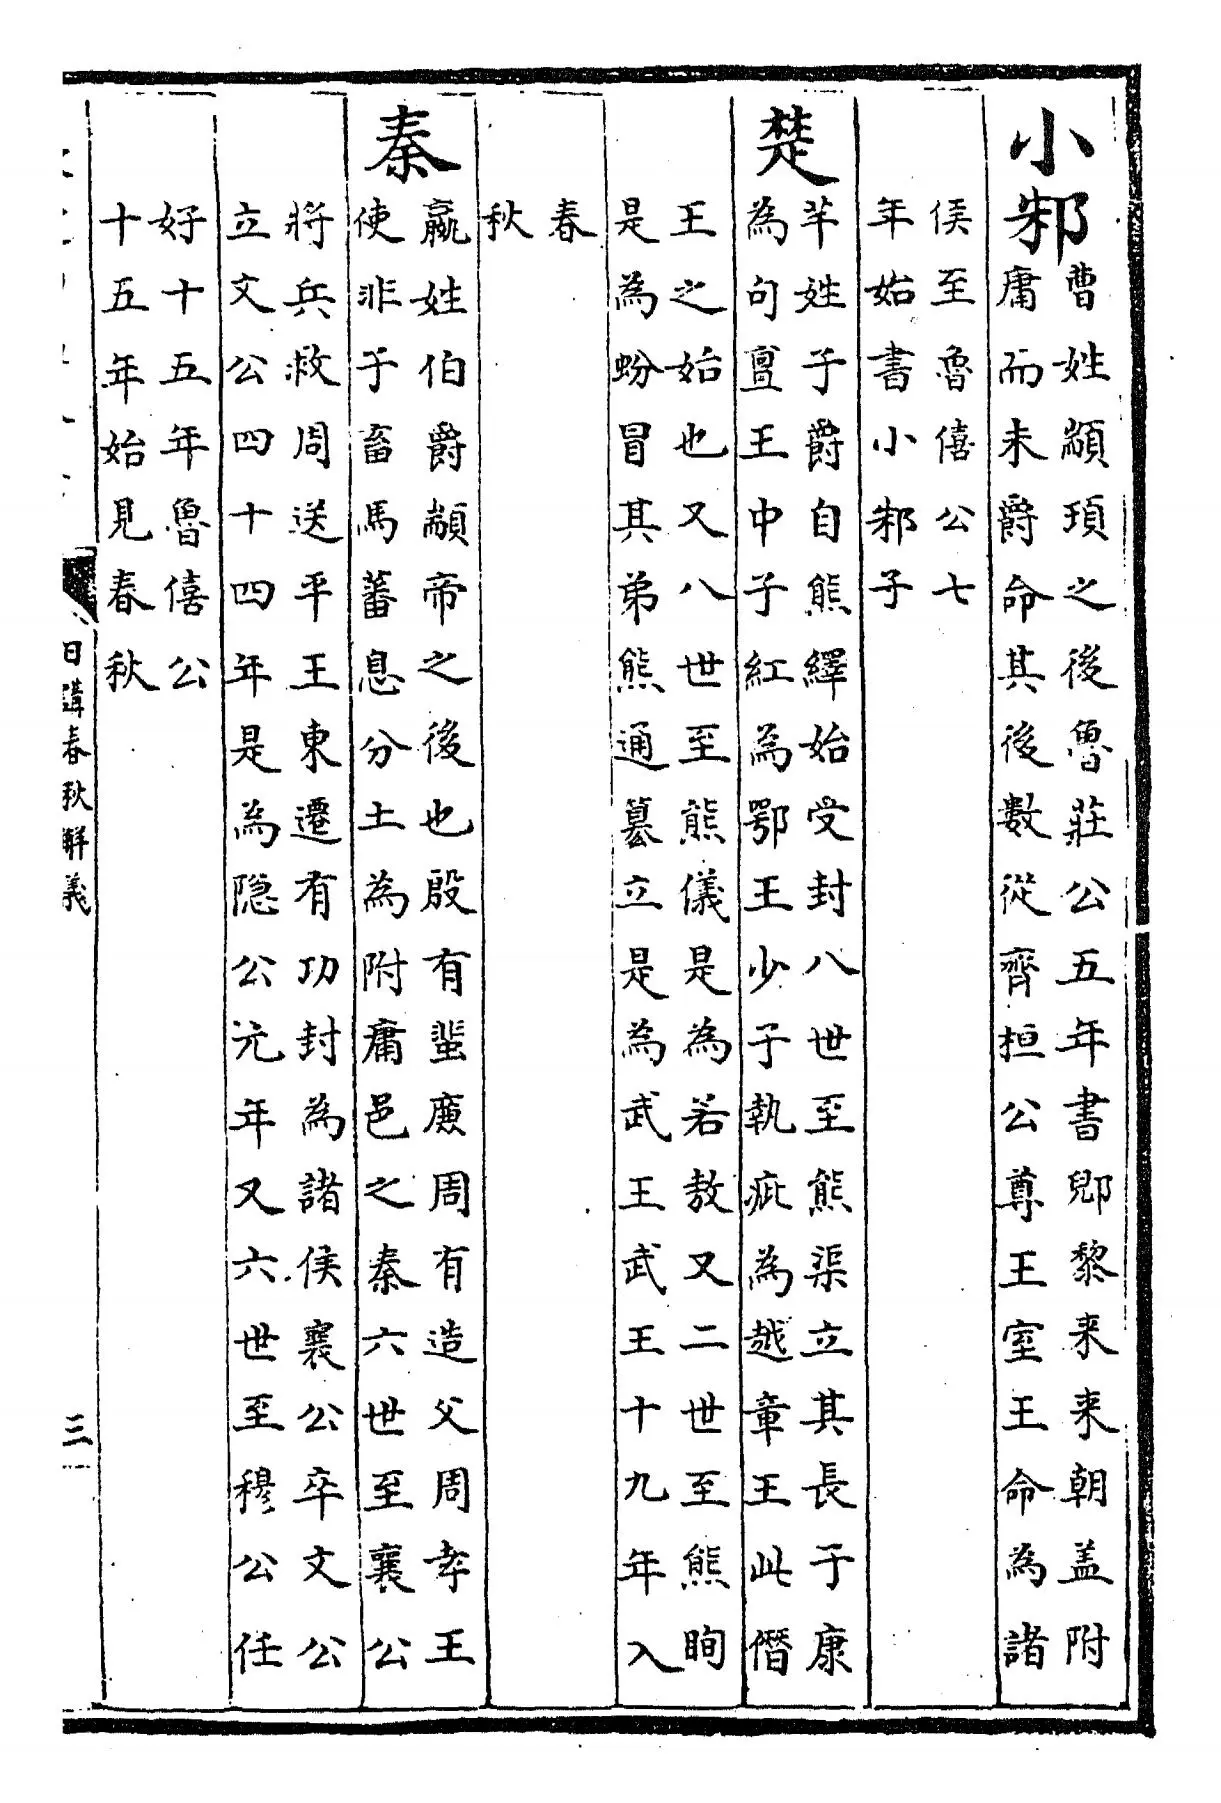 小邾
曹姓顓頊之後魯莊公五年書郳黎来来朝盖附
庸而未爵命其後數從齊桓公尊王室王命為諸
侯至魯僖公七
年始書小邾子
楚
芈姓子爵自熊繹始受封八世至熊渠立其長于康
為句亶王中子紅為鄂王少子執疵為越章王此僭
王之始也又八世至熊儀是為若敖又二世至熊眴
是為蚡冒其弟熊通簒立是為武王武王十九年入
春
秋
秦
嬴姓伯爵顓帝之後也殷有蜚廉周有造父周孝王
使非子畜馬蕃息分土為附庸邑之秦六世至襄公
將兵救周送平王東遷有功封為諸侯襄公卒文公
立文公四十四年是為隐公元年又六世至穆公任
好十五年魯僖公
十五年始見春秋
日講春秋解義
三